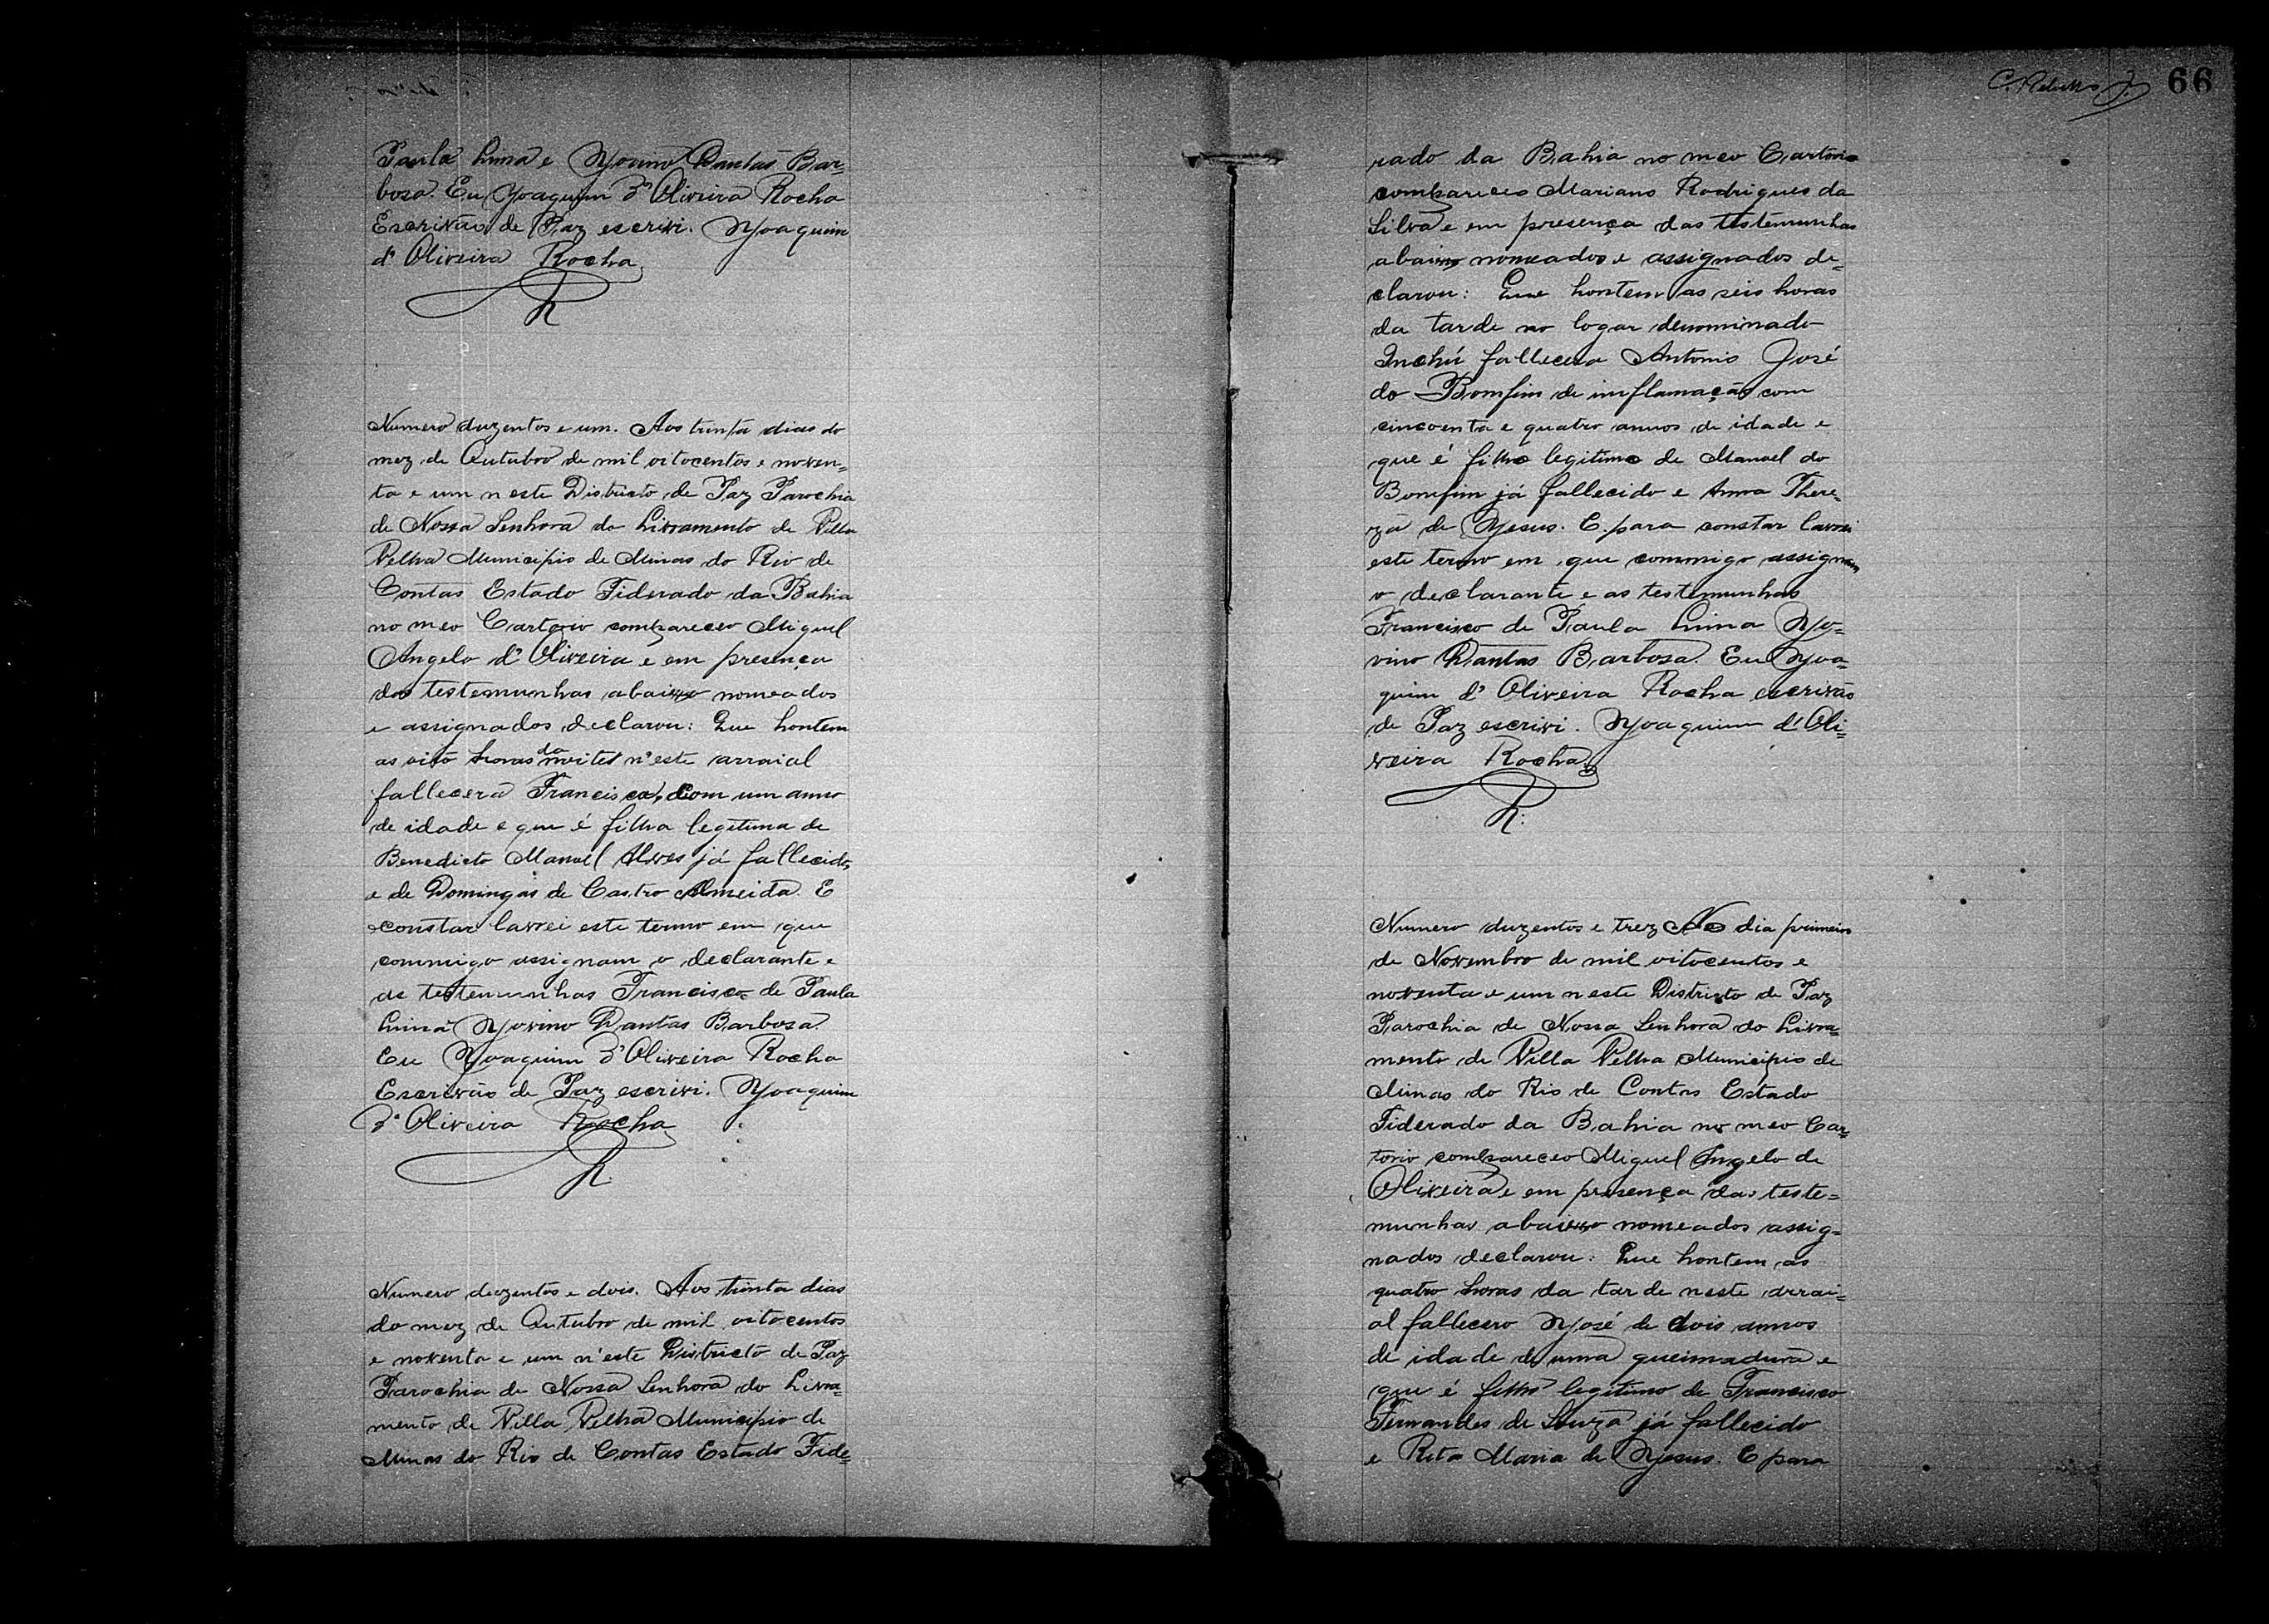 Paula Lima e Yovino Dantas Bar=
bosa. Eu Yoaquim d'Oliveira Rocha
Escrivão de Paz escrivi. Yoaquim
d'Oliveira Rocha
R
Numero duzentos e um. Aos trinta dias do
mez de Outubro de mil oitocentos e noven=
ta e um n'este Districto de Paz Parochia
de Nossa Senhora do Livramento de Villa
Velha Municipio de Minas do Rio de
Contas Estado Fiderado da Bahia
no meo Cartorio compareceo Miguel
Angelo d'Oliveira e em presença
das testemunhas abaixo nomeados
e assignados declarou: Que hontem
as oito horas da noites n'este arraial
fallecera Francisca, com um anno
de idade e que é filha legitima de
Benedicto Manoel Alves já fallecido,
e de Domingas de Castro Almeida. E
constar lavrei este termo em que
commigo assignam o declarante e
as testemunhas Francisco de Paula
Lima Yovino Dantas Barbosa.
Eu Yoaquim d'Oliveira Rocha
Escrivão de Paz escrivi. Yoaquim
d'Oliveira Rocha
R.
Numero duzentos e dois. Aos trinta dias
do mez de Outubro de mil oitocentos
e noventa e um n'este Districto de Paz
Parochia de Nossa Senhora do Livra=
mento de Villa Velha Municipio de
Minas do Rio de Contas Estado Fide=
66
rado da Bahia no meo Cartorio
compareceo Mariano Rodrigues da
Silva e em presença das testemunhas
abaixo nomeados e assignados de=
clarou: Que hontem as seis horas
da tarde no logar denominado
Inchú fallecera Antonio José
do Bomfim de inflamação com
cincoenta e quatro annos de idade e
que é filho legitimo de Manoel do
Bomfim já fallecido e Anna There=
za de Yesus. E para constar lavrei
este termo em que commigo assignam
o declarante e as testemunhas
Francisco de Paula Lima Yo=
vino Dantas Barbosa. Eu Yoa=
quim d'Oliveira Rocha escrivão
de Paz escrivi. Yoaquim d'Oli=
veira Rocha
R.
Numero duzentos e trez No dia primeiro
de Novembro de mil oitocentos e
noventa e um n'este Districto de Paz
Parochia de Nossa Senhora do Livra=
mento de Villa Velha Municipio de
Minas do Rio de Contas Estado
Fiderado da Bahia no meo Car=
torio compareceo Miguel Angelo de
Oliveira e em presença das teste=
munhas abaixo nomeados assig=
nados declarou: Que hontem as
quatro horas da tarde neste arrai=
al fallecero Yosé de dois annos
de idade de uma queimadura e
que é filho legitimo de Francisco
Fernandes de Souza já fallecido
e Rita Maria de Yesus. E para